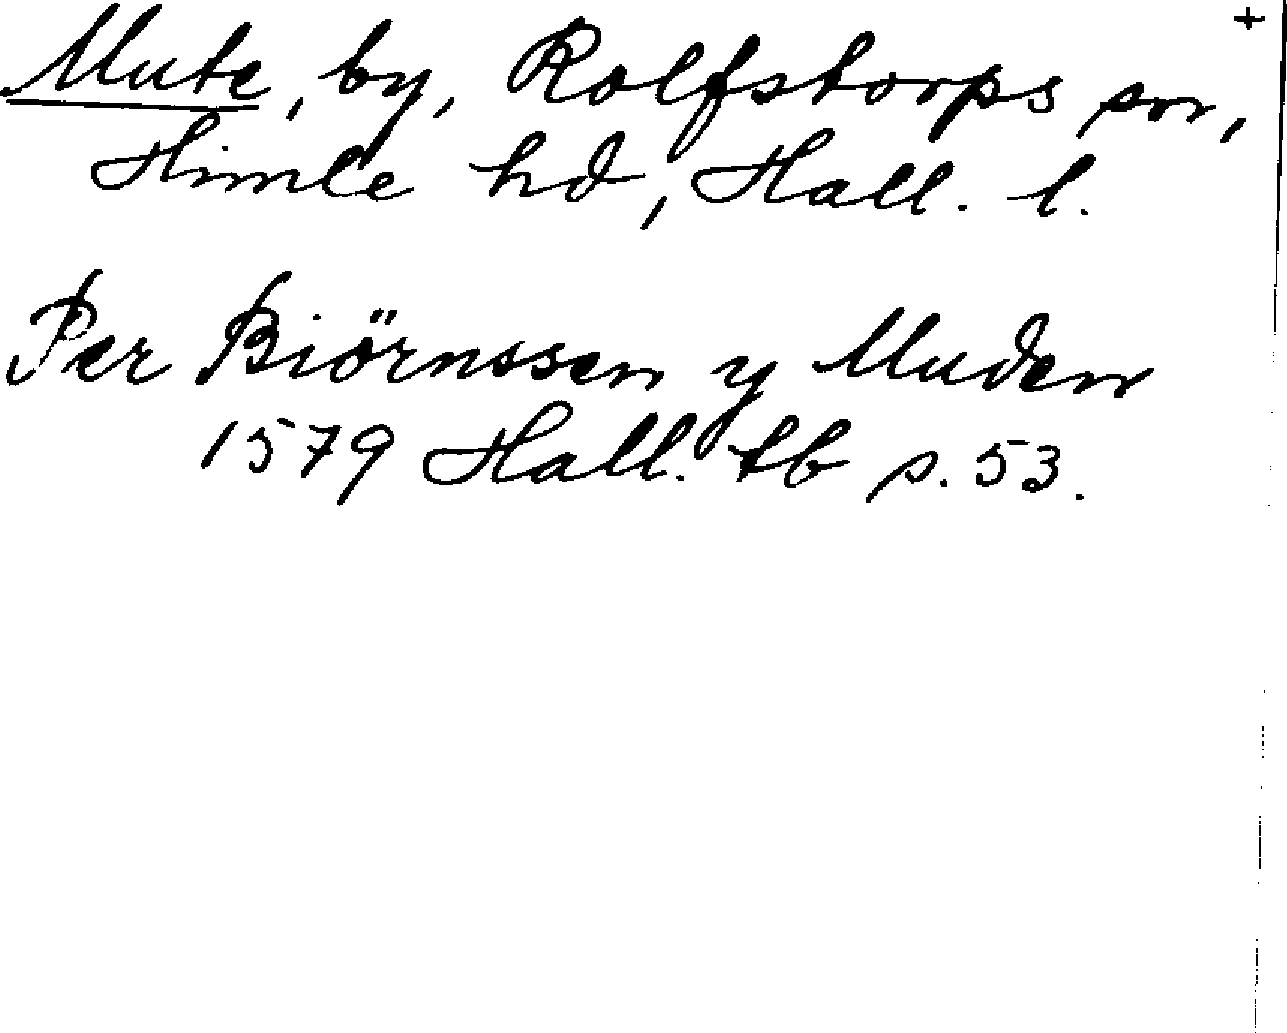 +
Mute, by, Rolfstorps sn,
Himle hd, Hall. l.
Per Biörnssen y Muden
1579 Hall. tb s. 53.